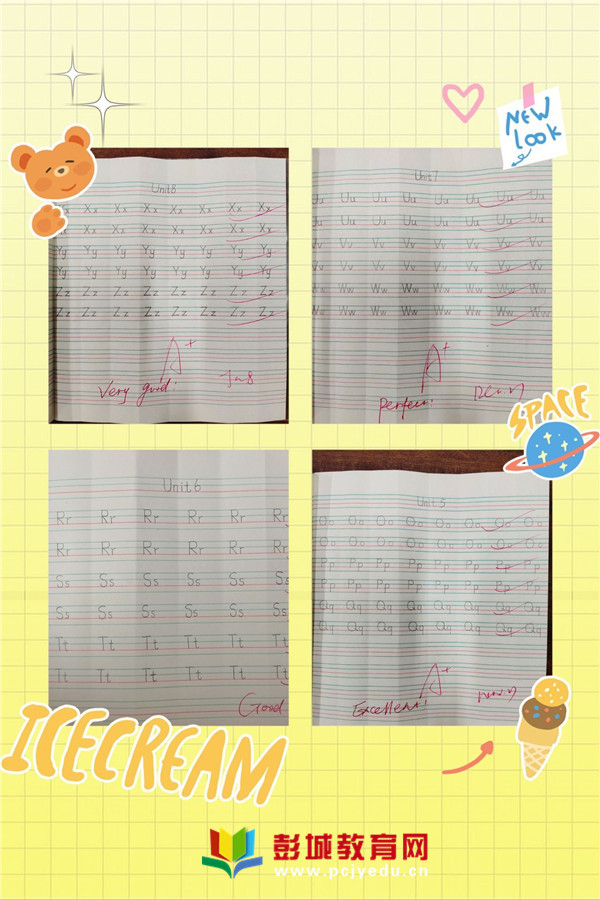 NEW
LOOK
Unit 8
Xx Xx Xx Xx Xx Xx Xx
Xx Xx Xx Xx Xx Xx Xx
Yy Yy Yy Yy Yy Yy Yy Yy
Yy Yy Yy Yy Yy Yy Yy Yy
Zz Zz Zz Zz Zz Zz Zz Zz
Zz Zz Zz Zz Zz Zz Zz Zz
A+
Very good!
Unit 7
Uu Uu Uu Uu Uu Uu Uu Uu
Uu Uu Uu Uu Uu Uu Uu Uu
Vv Vv Vv Vv Vv Vv Vv Vv
Vv Vv Vv Vv Vv Vv Vv Vv
Ww Ww Ww Ww Ww Ww Ww Ww
Ww Ww Ww Ww Ww Ww Ww Ww
A+
Perfect!
SPACE
Unit 6
Rr Rr Rr Rr Rr Rr
Rr Rr Rr Rr Rr Rr
Ss Ss Ss Ss Ss Ss
Ss Ss Ss Ss Ss Ss
Tt Tt Tt Tt Tt Tt
Tt Tt Tt Tt Tt Tt
Good
Unit 5
Oo Oo Oo Oo Oo Oo Oo Oo
Oo Oo Oo Oo Oo Oo Oo Oo
Pp Pp Pp Pp Pp Pp Pp Pp
Pp Pp Pp Pp Pp Pp Pp Pp
Qq Qq Qq Qq Qq Qq Qq Qq
Qq Qq Qq Qq Qq Qq Qq Qq
A+
Excellent!
ICECREAM
彭城教育网
www.pcjyedu.cn